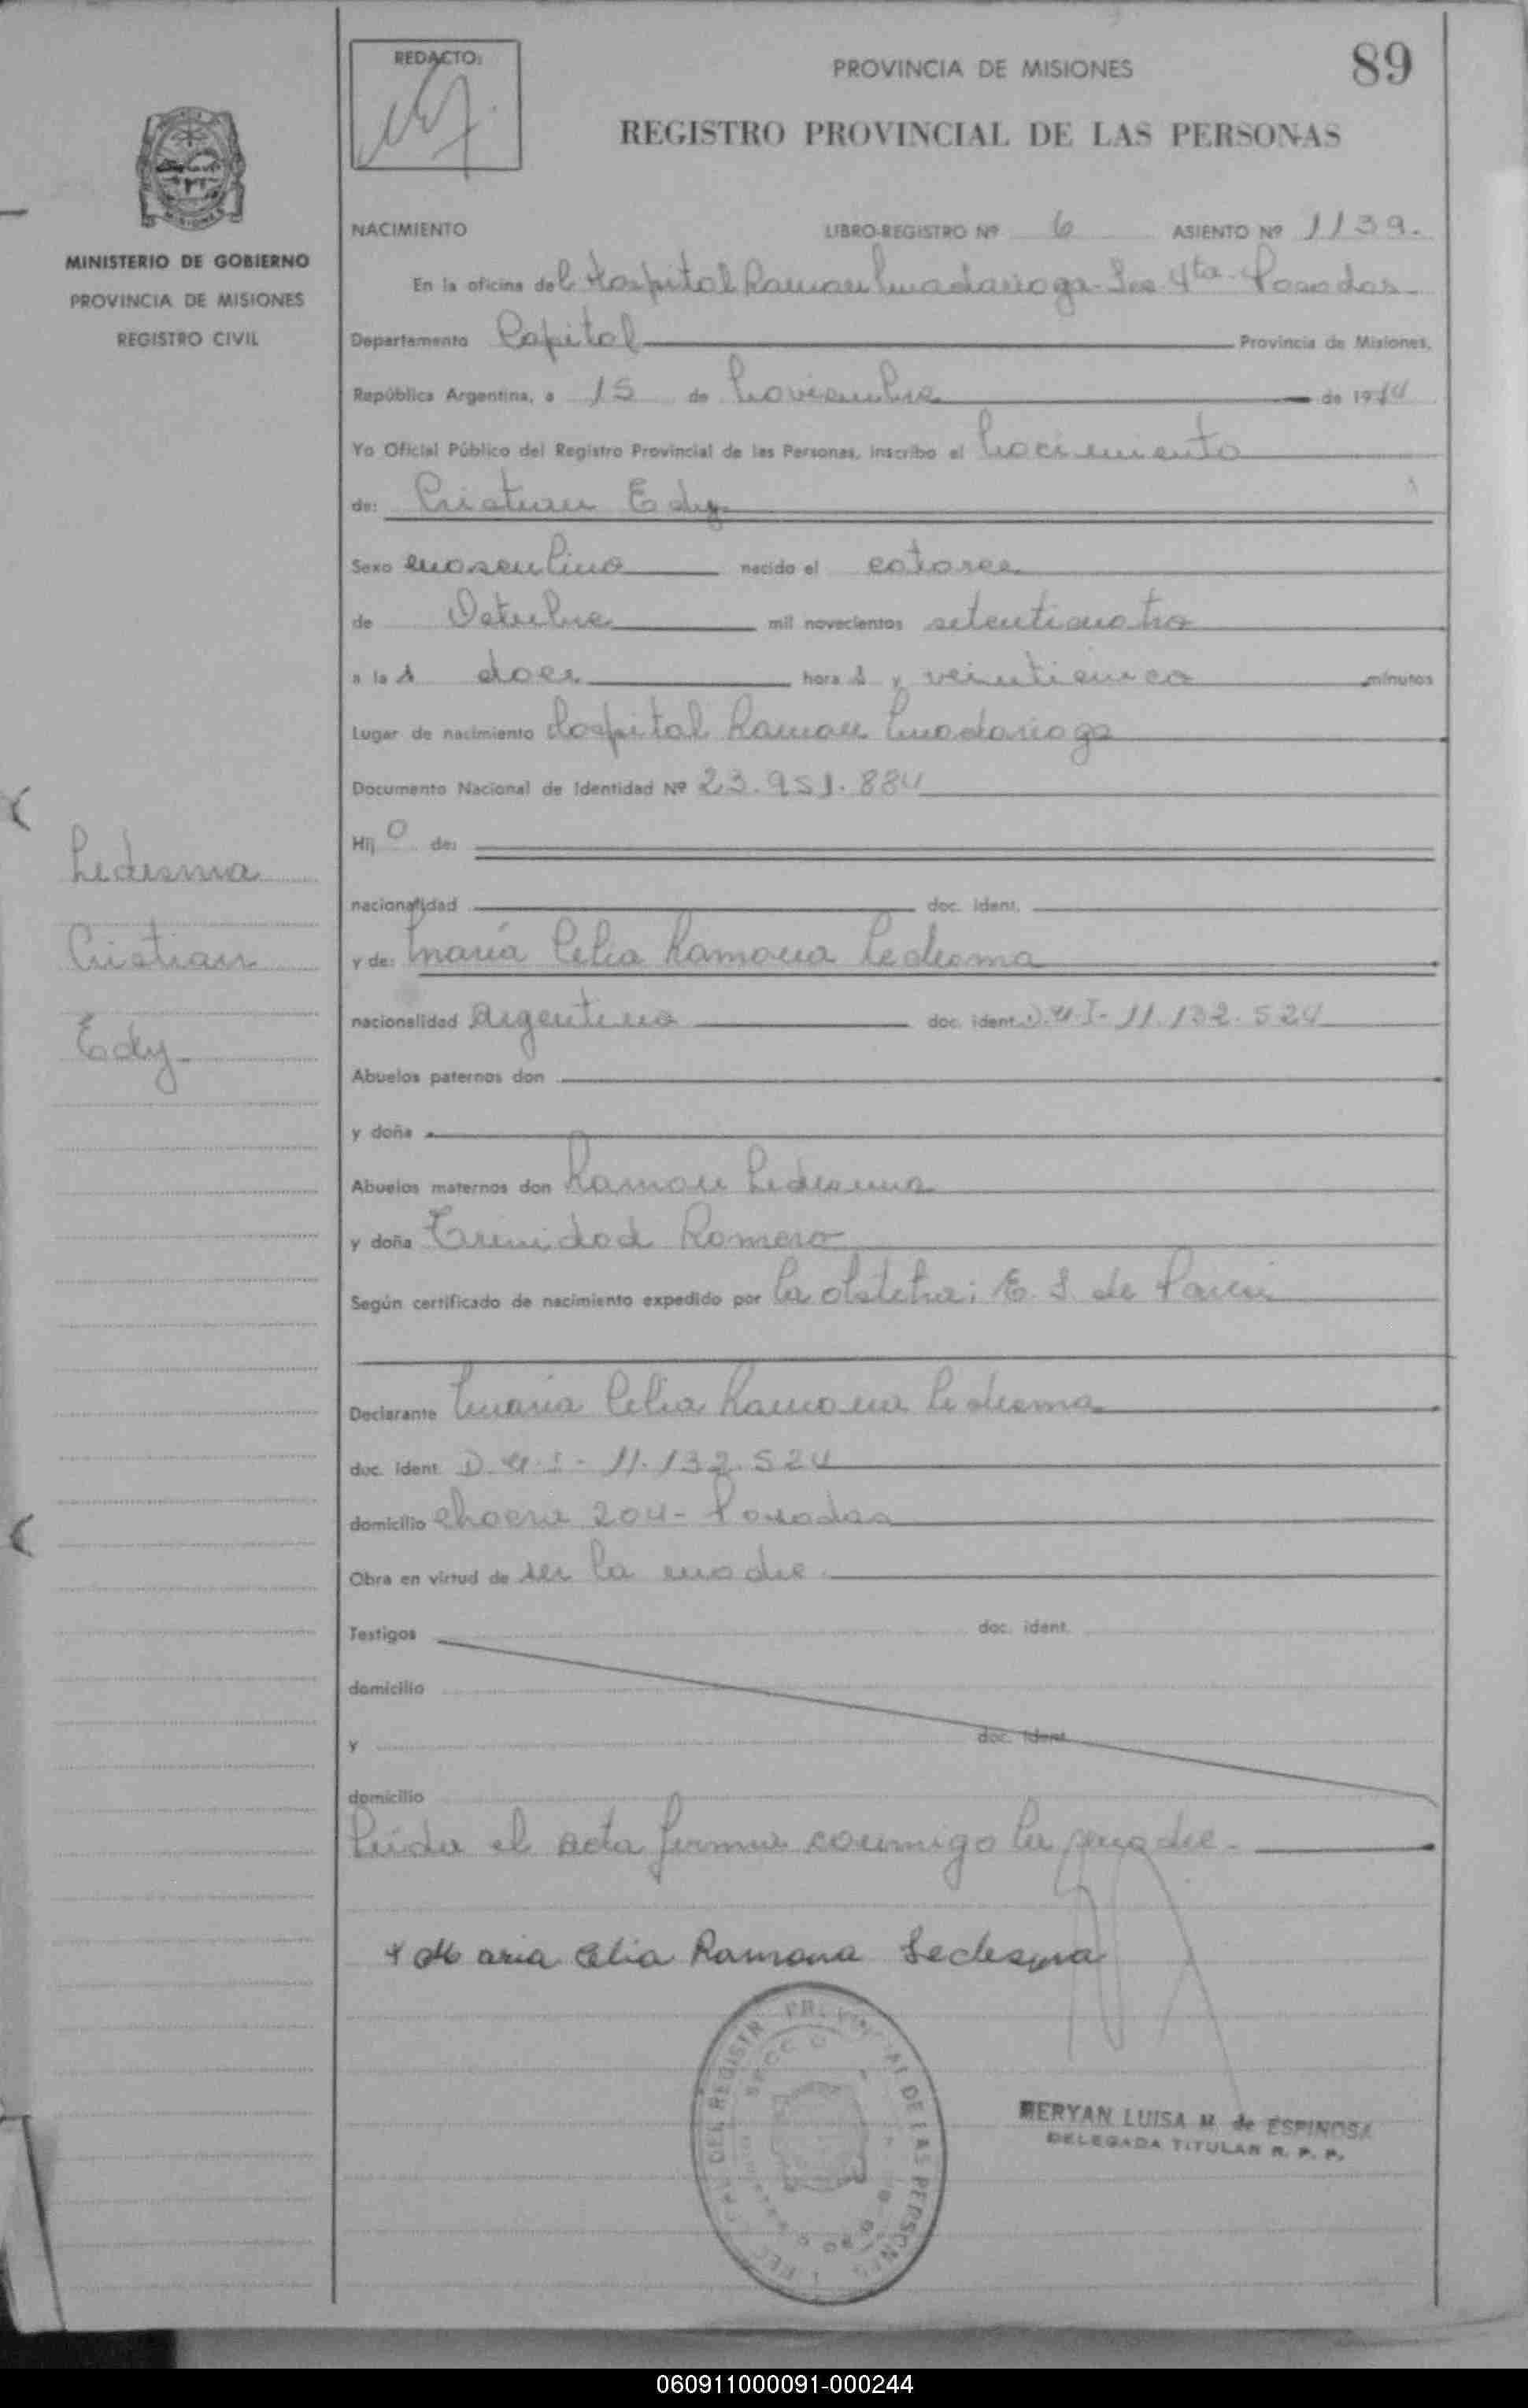 89
REDACTO:
PROVINCIA DE MISIONES
REGISTRO PROVINCIAL DE LAS PERSONAS
MINISTERIO DE GOBIERNO
PROVINCIA DE MISIONES
REGISTRO CIVIL
Ledesma
Cristian
Edy
NACIMIENTO LIBRO-REGISTRO Nº 6 ASIENTO Nº 1139.
En la oficina del Hospital Ramon Madariaga - Sec 4ta - Posadas
Departamento Capital Provincia de Misiones,
República Argentina, a 15 de Noviembre de 1974
Yo Oficial Público del Registro Provincial de las Personas, inscribo el Nacimiento
de: Cristian Edy
Sexo masculino nacido el catorce
de Octubre mil novecientos setenticuatro
a las doce horas y veinticinco minutos
Lugar de nacimiento Hospital Ramon Madariaga
Documento Nacional de Identidad Nº 23.951.884
Hijo de:
nacionalidad doc. ident.
y de: María Celia Ramona Ledesma
nacionalidad Argentina doc. ident. D.N.I- 11.132.524
Abuelos paternos don
y doña
Abuelos maternos don Ramon Ledesma
y doña Trinidad Romero
Según certificado de nacimiento expedido por la obstetra: E. S. de
Declarante María Celia Ramona Ledesma
doc. ident. D.N.I- 11.132.524
domicilio chacra 204- Posadas
Obra en virtud de ser la madre.
Testigos doc. ident.
domicilio
y doc. ident.
domicilio
Leída el acta firma conmigo la madre.-
Maria Celia Ramona Ledesma
MERYAN LUISA M. de ESPINOSA
DELEGADA TITULAR R. P. P.
060911000091-000244